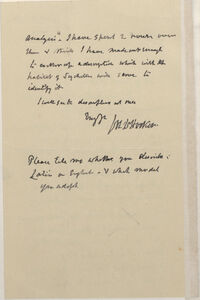 Analysis". I have spent 2 hours over
them & think I have made out enough
to
description which with the
habitat of Seychelles will serve to
identify it.
I will send description at once
Jos. D Hooker
Please tell me whether you describe in
Latin or English — & what model
you adopt